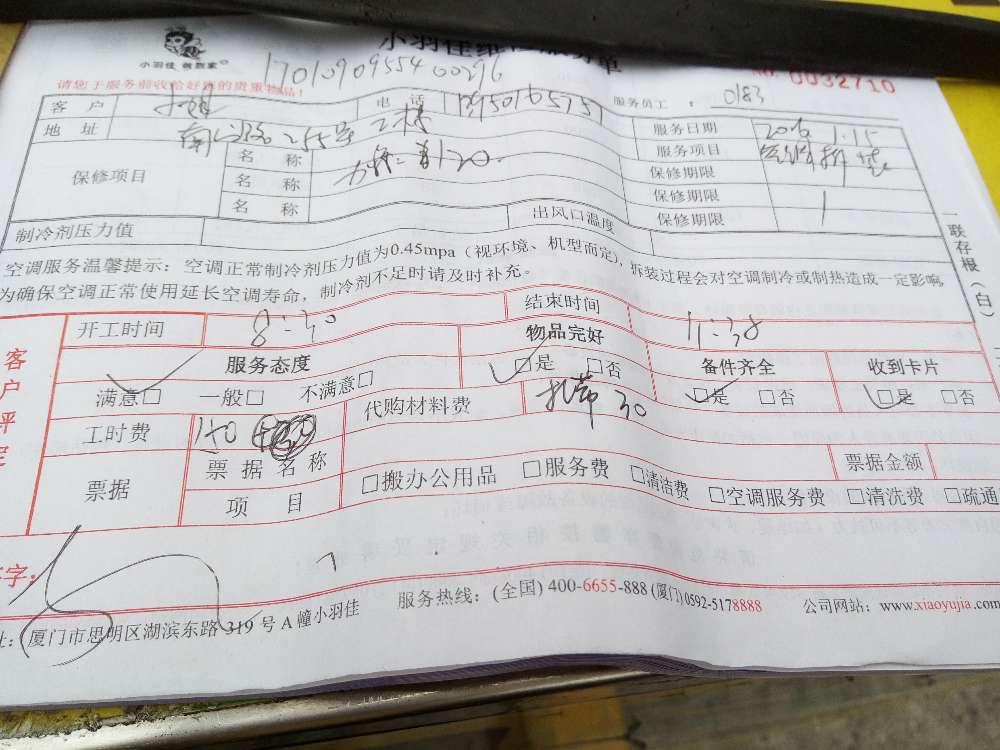 小羽佳 做到家
小羽佳
单
请您于服务前收拾好您的贵重物品！
1701090955400296
NO. 0032710
客 户
电 话
服务员工：0183
地 址 255号
服务日期 1.15
保修项目
名 称
服务项目
名 称
保修期限
名 称
保修期限 1
保修期限
制冷剂压力值
出风口温度
空调服务温馨提示：空调正常制冷剂压力值为0.45mpa（视环境、机型而定），拆装过程会对空调制冷或制热造成一定影响，
为确保空调正常使用延长空调寿命，制冷剂不足时请及时补充。
一联存根（白）
客户评定
开工时间 8:30 结束时间 11:38
服务态度 物品完好 备件齐全 收到卡片
满意□ 一般□ 不满意□ □是 □否 □是 □否 □是 □否
工时费 代购材料费 扎带 30
票据
票据名称 □搬办公用品 □服务费 □清洁费 □空调服务费 □清洗费 □疏通
票据金额
项 目
字：
服务热线：(全国) 400-6655-888 (厦门) 0592-5178888 公司网站：www.xiaoyujia.com
址：厦门市思明区湖滨东路 319 号 A 幢小羽佳